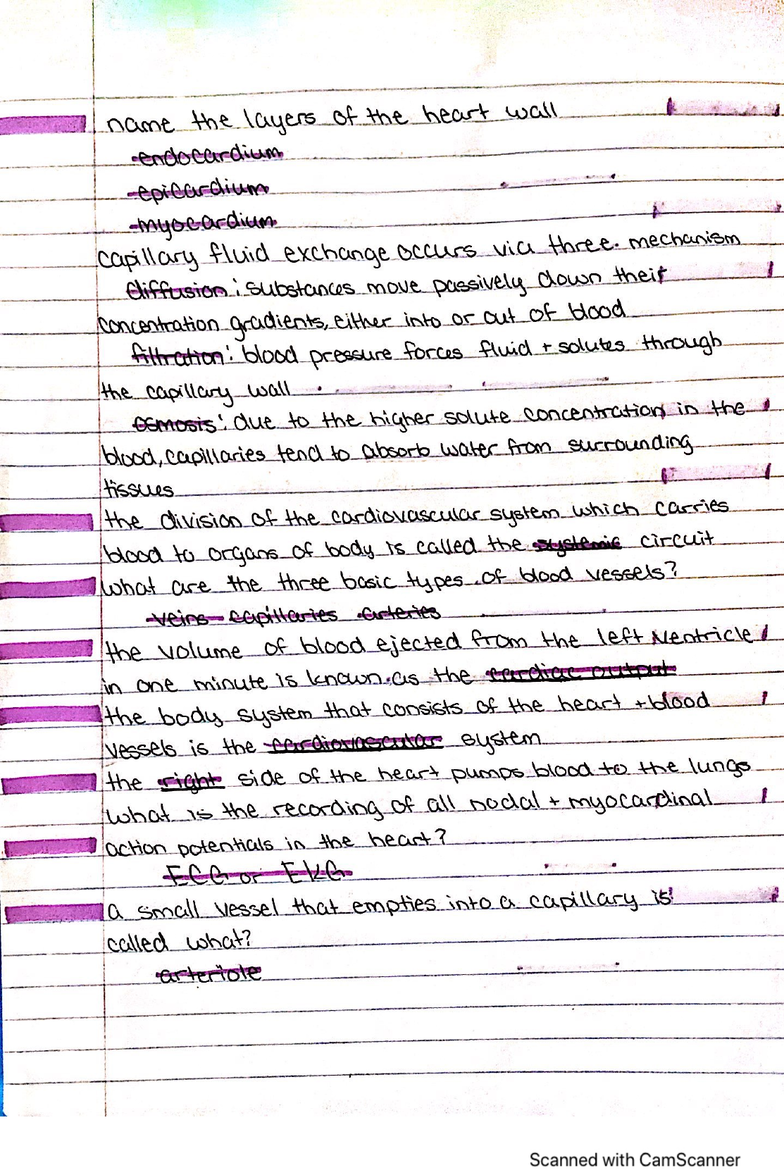 name the layers of the heart wall
-endocardium
-epicardium
-myocardium
capillary fluid exchange occurs via three mechanism
diffusion: substances move passively down their
concentration gradients, either into or out of blood
filtration: blood pressure forces fluid + solutes through
the capillary wall
osmosis: due to the higher solute concentration in the
blood, capillaries tend to absorb water from surrounding
tissues
the division of the cardiovascular system which carries
blood to organs of body is called the systemic circuit
what are the three basic types of blood vessels?
-veins -capillaries -arteries
the volume of blood ejected from the left ventricle
in one minute is known as the cardiac output
the body system that consists of the heart + blood
vessels is the cardiovascular system
the right side of the heart pumps blood to the lungs
what is the recording of all nodal + myocardinal
action potentials in the heart?
ECG or EKG
a small vessel that empties into a capillary is
called what?
-arteriole
Scanned with CamScanner